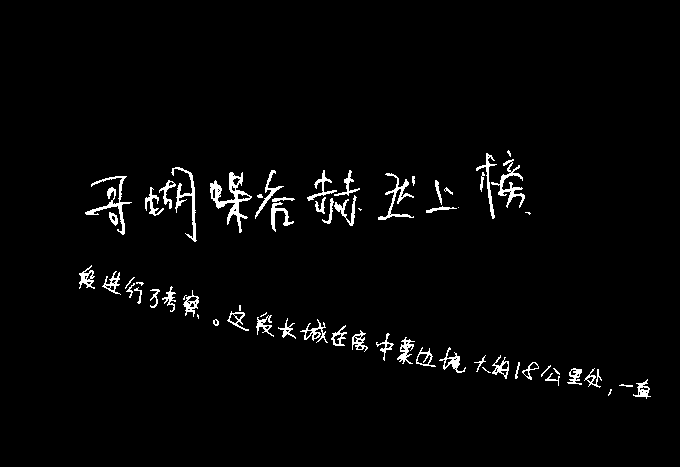 哥蝴蝶谷赫然上榜
段进行了考察。这段长城在离中蒙边境大约18公里处，一直